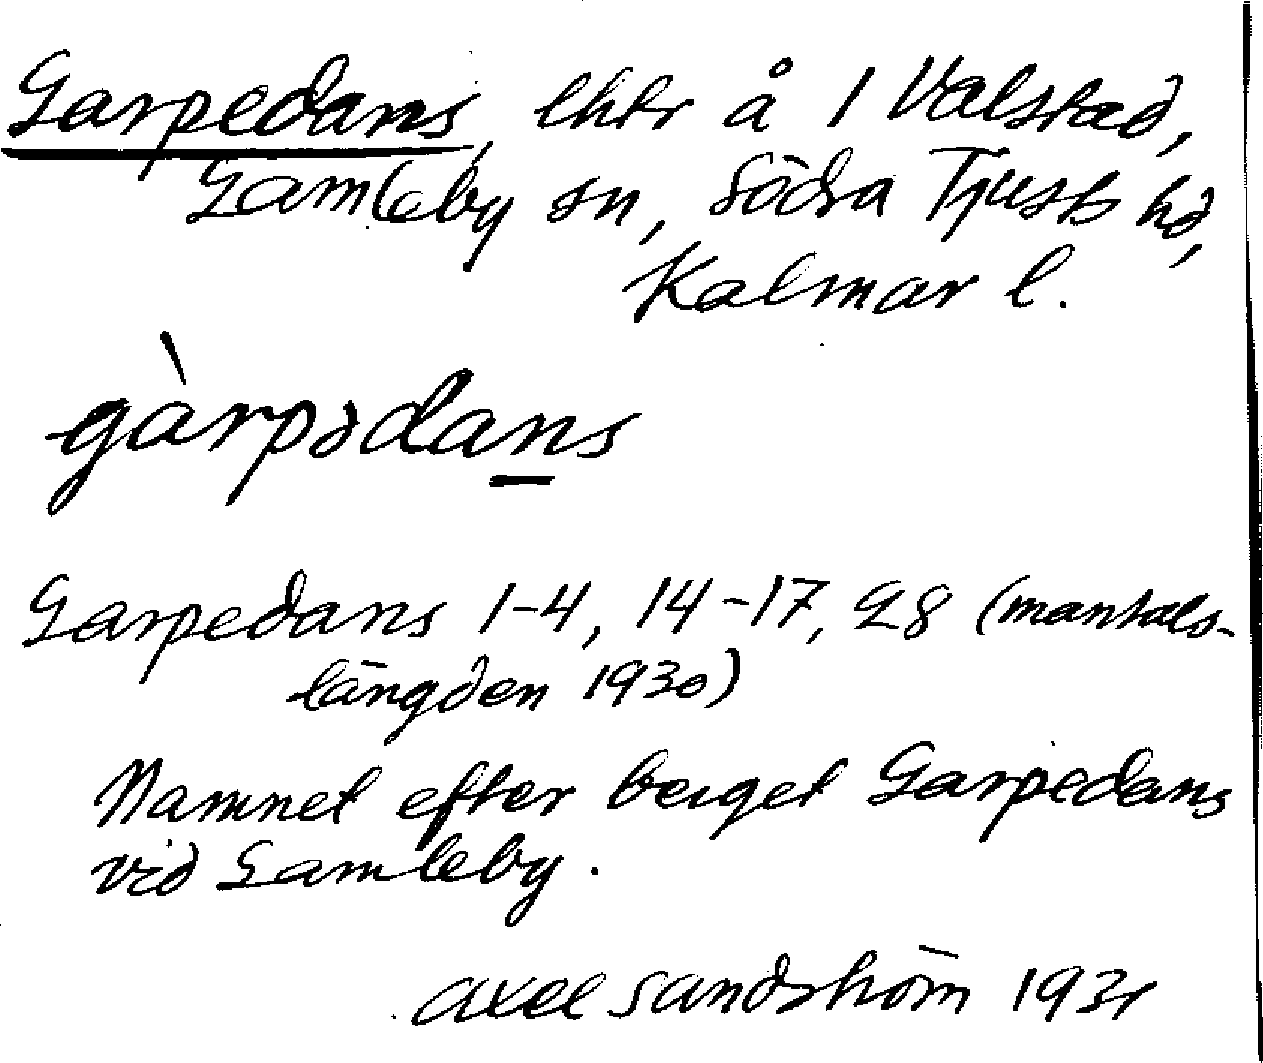 Garpedans, lhtr å 1 Valstad,
Gamleby sn, Södra Tjusts hd,
Kalmar l.
gàrpədans
Garpedans 1-4, 14-17, 28 (mantals-
längden 1930)
Namnet efter berget Garpedans
vid Gamleby.
Axel Sandström 1931